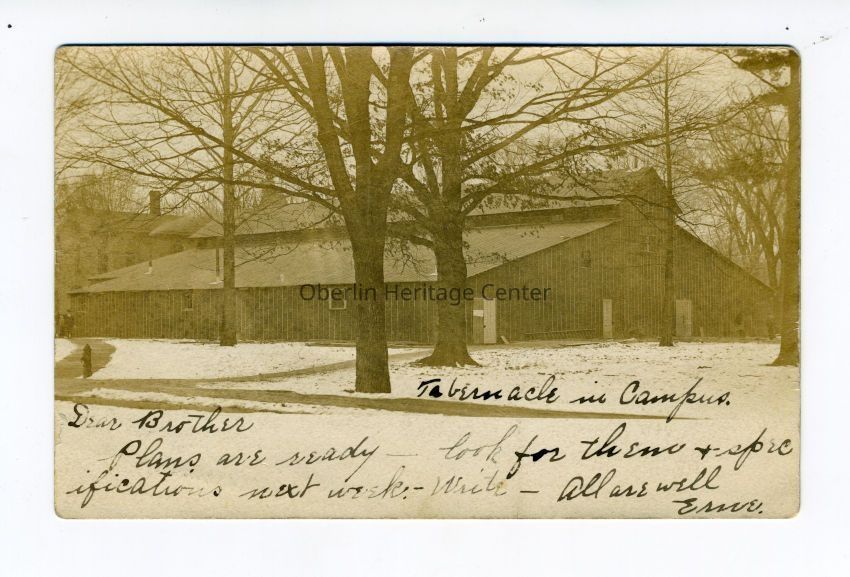 Oberlin Heritage Center
Tabernacle in Campus.
Dear Brother
Plans are ready — look for them + spec
ifications next week. - Write - All are well
Erne.